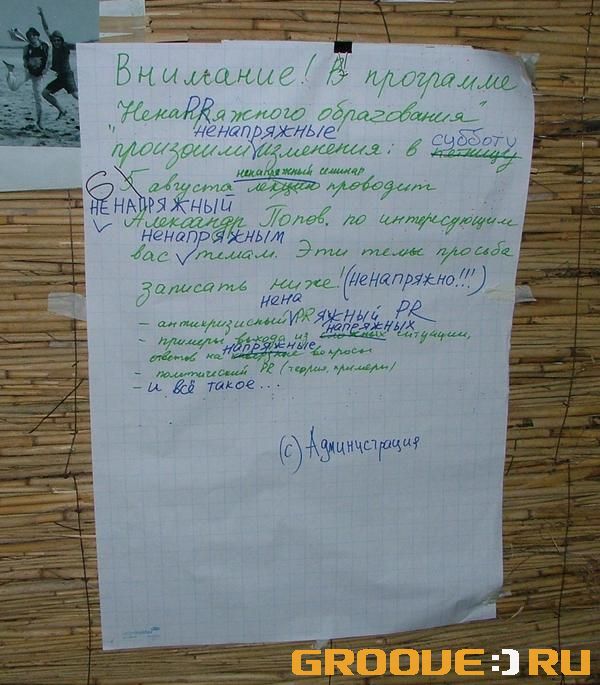 Внимание! В программе
PR
"Ненапряжного образования"
ненапряжные
произошли изменения: в субботу пятницу
ненапряжный семинар
6 5 августа лекцию проводит
НЕНАПРЯЖНЫЙ
Александр Попов, по интересующим
ненапряжным
вас темам. Эти темы просьба
записать ниже! (ненапряжно!!!)
нена
- антикризисный PRяжный PR
напряжных
- примеры выхода из сложных ситуации,
напряжные
ответов на вопросы
- политический PR (теория, примеры)
- и всё такое...
(с) Администрация
GROOVE:) RU